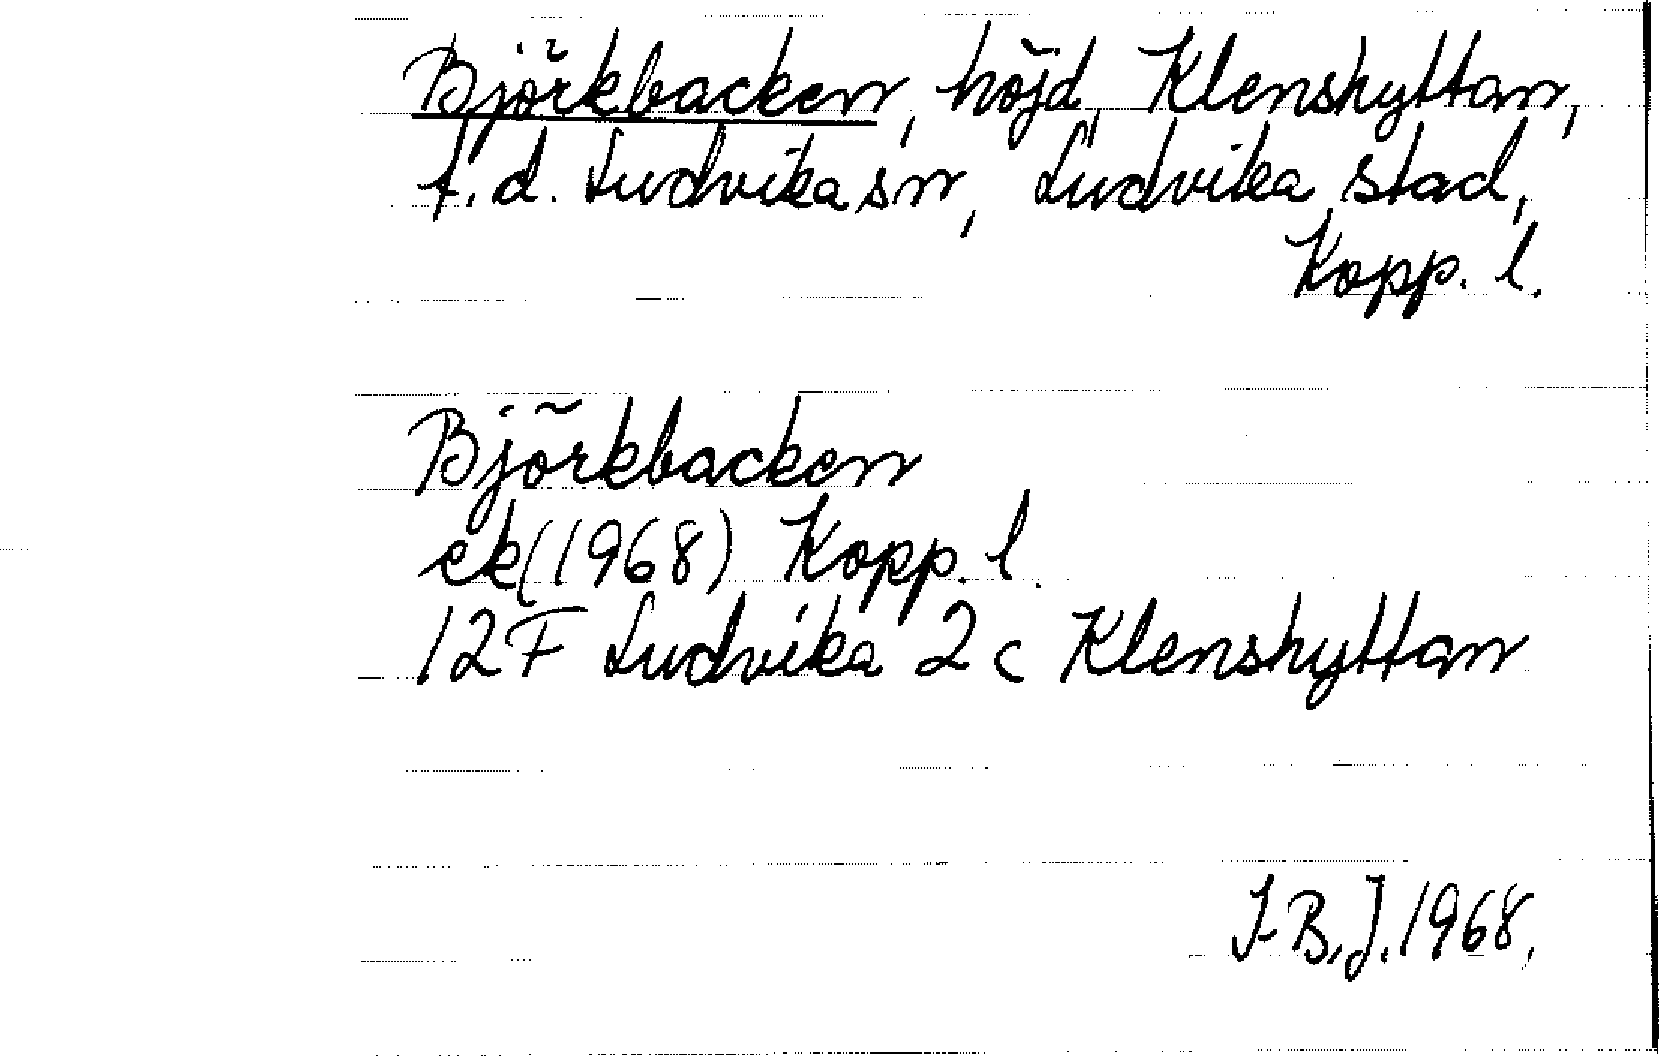 Björkbacken, höjd, Klenshyttan,
f.d. Ludvika sn, Ludvika stad,
Kopp. l.
Björkbacken
ek (1968) Kopp. l.
12 F Ludvika 2 c Klenshyttan
I-B.J. 1968.